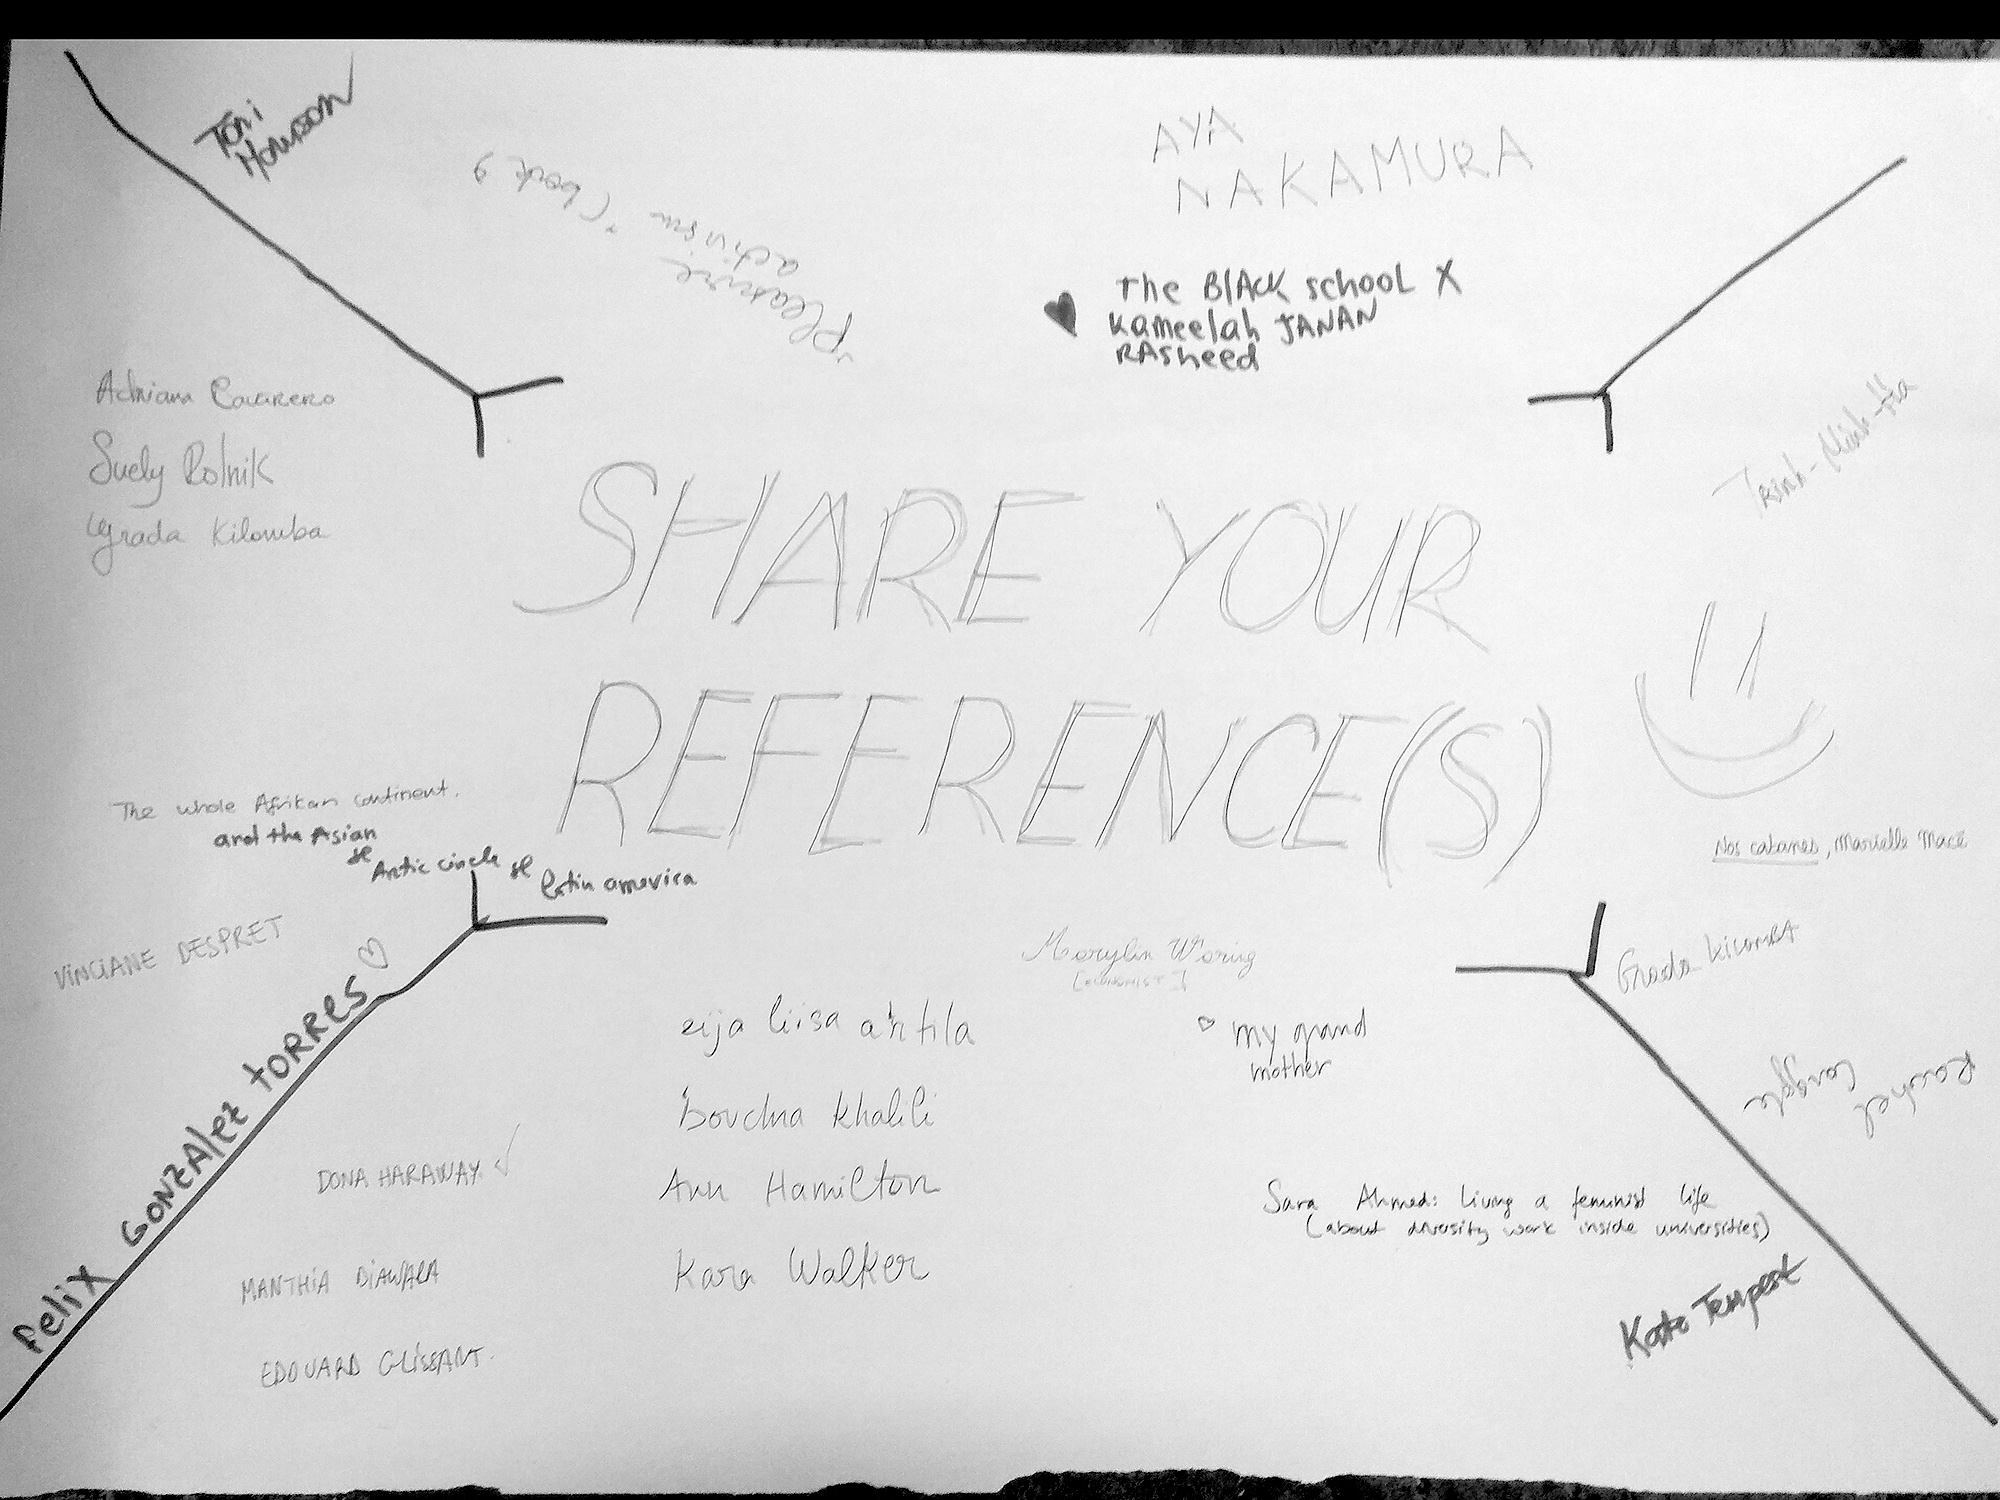 Toni
Morrison
"Pleasure
activism" (book)
AYA
NAKAMURA
The BlAck school X
Kameelah JANAN
RAsheed
Adriana Cavarero
Suely Rolnik
Grada Kilomba
Trinh-Minh-Ha
SHARE YOUR
REFERENCE(S)
The whole Afrikan continent.
and the Asian
Artic circle
Latin america
Nos cabanes, Marielle Macé
VINCIANE DESPRET
FeliX GONZAlez tORRes
Marylin Waring
[ECONOMIST]
Grada Kilomba
eija liisa ahtila
my grand
mother
bouchra khalili
Rachel
DONA HARAWAY
Ann Hamilton
Sara Ahmed: Living a feminist life
(about diversity work inside universities)
MANTHIA DIAWARA
Kara Walker
Kate Tempest
EDOUARD GLISSANT.